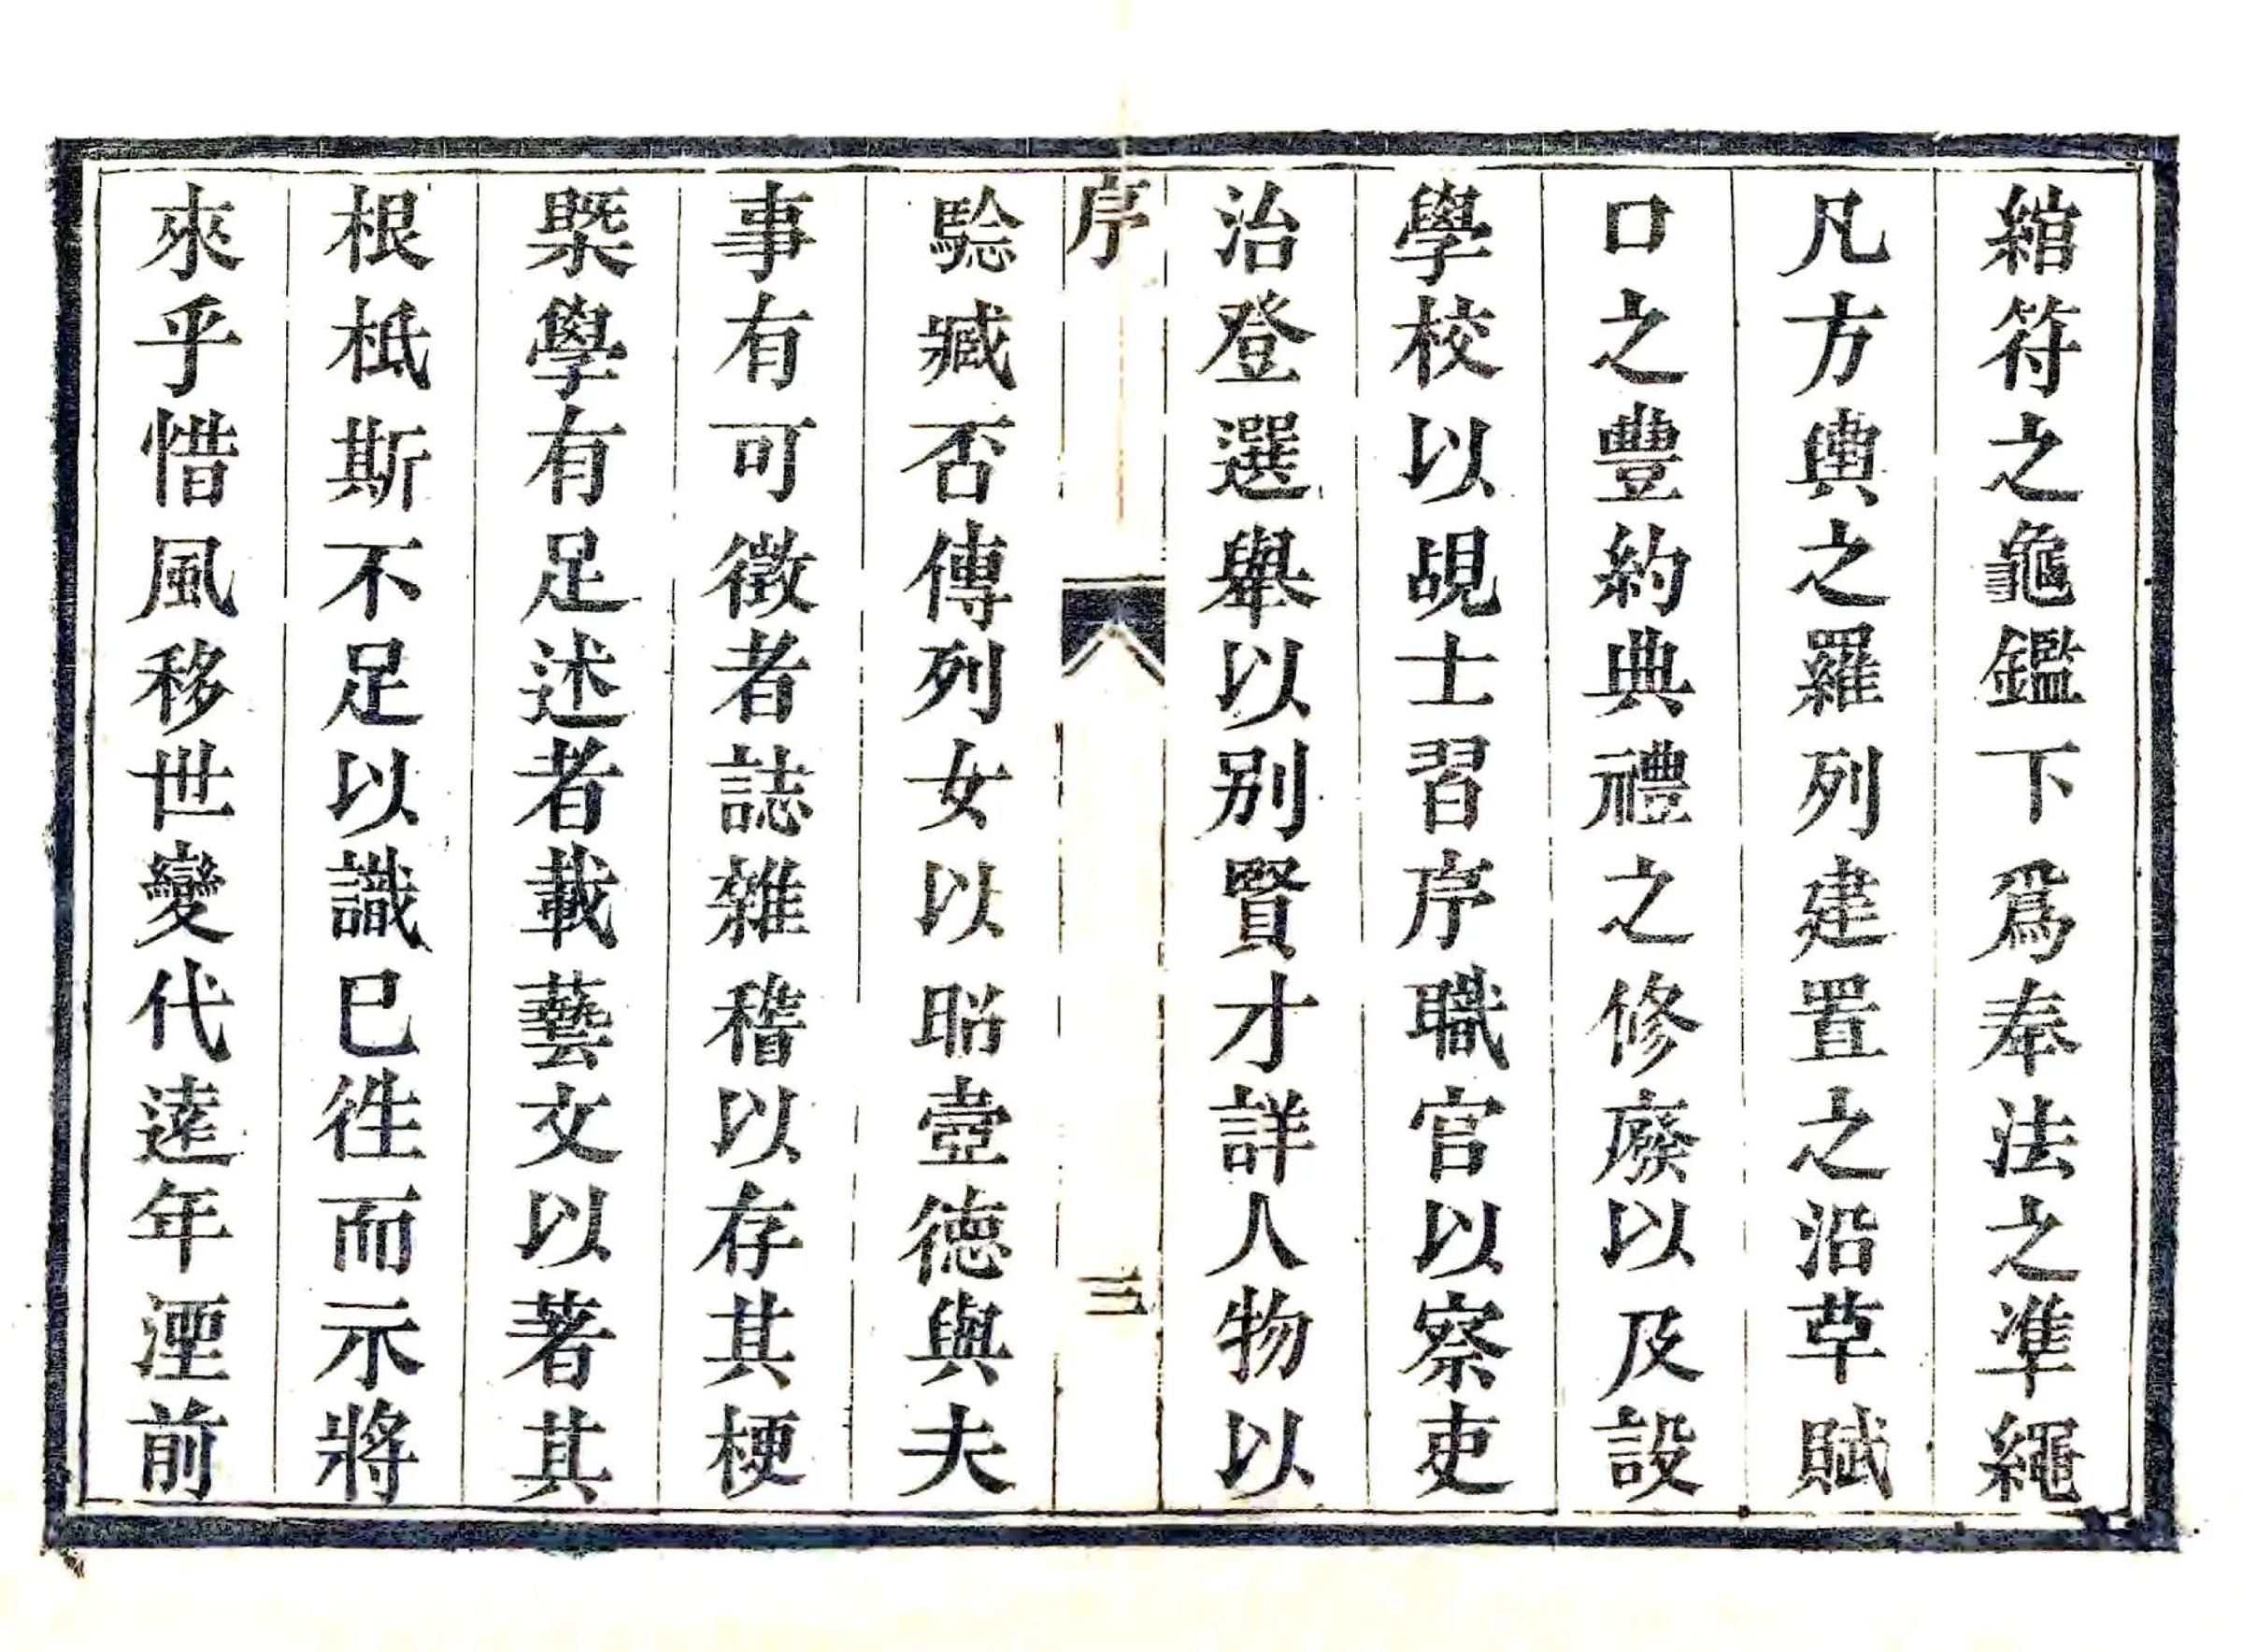 綰符之龜鑑下爲奉法之準繩
凡方輿之羅列建置之沿草賦
口之豐約典禮之修廢以及設
學校以覘士習序職官以察吏
治登選舉以別賢才詳人物以
序
三
驗臧否傳列女以昭壼德與夫
事有可徵者誌雜稽以存其梗
槩學有足述者載藝文以著其
根柢斯不足以識巳徃而示將
來乎惜風移世變代逺年湮前